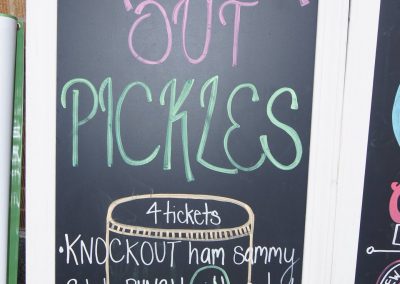 OUT
PICKLES
4 tickets
•KNOCKOUT ham sammy